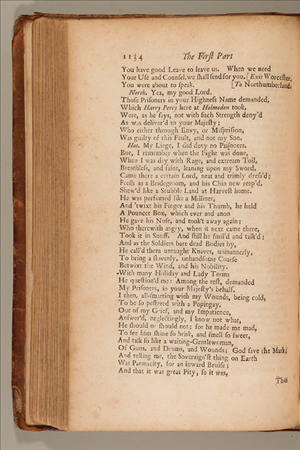 1134 The First Part
You have good Leave to leave us. When we need
Your Use and Counsel, we shall send for you. [Exit Worcester.
You were about to speak. [To Northumberland.
North. Yes, my good Lord.
Those Prisoners in your Highness Name demanded,
Which Harry Percy here at Holmedon took,
Were, as he says, not with such Strength deny'd
As was deliver'd to your Majesty;
Who either through Envy, or Misprision,
Was guilty of this Fault, and not my Son.
Hot. My Liege, I did deny no Prisoners.
But, I remember when the Fight was done,
When I was dry with Rage, and extream Toil,
Breathless, and faint, leaning upon my Sword,
Came there a certain Lord, neat and trimly dress'd;
Fresh as a Bridegroom, and his Chin new reap'd,
Shew'd like a Stubble Land at Harvest home.
He was perfumed like a Milliner,
And 'twixt his Finger and his Thumb, he held
A Pouncet Box, which ever and anon
He gave his Nose, and took't away again;
Who therewith angry, when it next came there,
Took it in Snuff. And still he smil'd and talk'd;
And as the Soldiers bare dead Bodies by,
He call'd them untaught Knaves, unmannerly,
To bring a slovenly, unhandsome Coarse
Betwixt the Wind, and his Nobility.
With many Holliday and Lady Terms
He question'd me: Among the rest, demanded
My Prisoners, in your Majesty's behalf.
I then, all-smarting with my Wounds, being cold,
To be so pestered with a Popingay,
Out of my Grief, and my Impatience,
Answer'd, neglectingly, I know not what,
He should or should not; for he made me mad,
To see him shine so brisk, and smell so sweet,
And talk so like a waiting-Gentlewoman,
Of Guns, and Drums, and Wounds; God save the Mark;
And telling me, the Soveraign'st thing on Earth
Was Parmacity, for an inward Bruise;
And that it was great Pity, so it was,